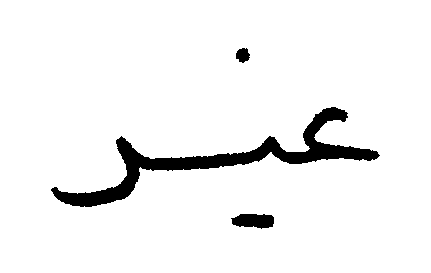 غير